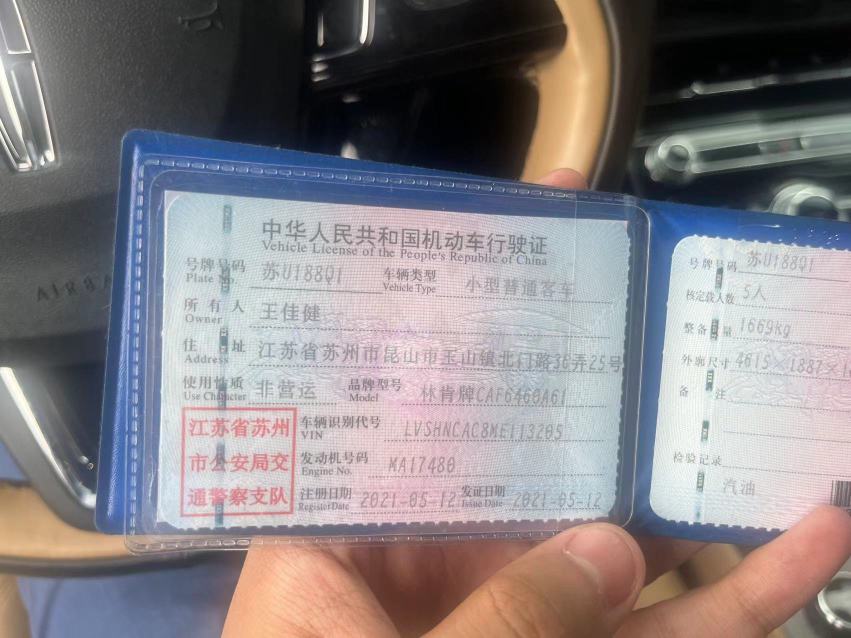 中华人民共和国机动车行驶证
Vehicle License of the People's Republic of China
号牌号码 苏U188Q1 车辆类型 小型普通客车
Plate No. Vehicle Type
所有人 王佳健
Owner
住址 江苏省苏州市昆山市玉山镇北门路36弄25号
Address
使用性质 非营运 品牌型号 林肯牌CAF6460A61
Use Character Model
江苏省苏州
市公安局交
通警察支队
车辆识别代号 LVSHNCAC8ME113205
VIN
发动机号码 MA17480
Engine No.
注册日期 2021-05-12 发证日期 2021-05-12
Register Date Issue Date
号牌号码 苏U188Q1
核定载人数 5人
整备质量 1669kg
外廓尺寸 4615×1887×
备注
检验记录
汽油
AIRBA